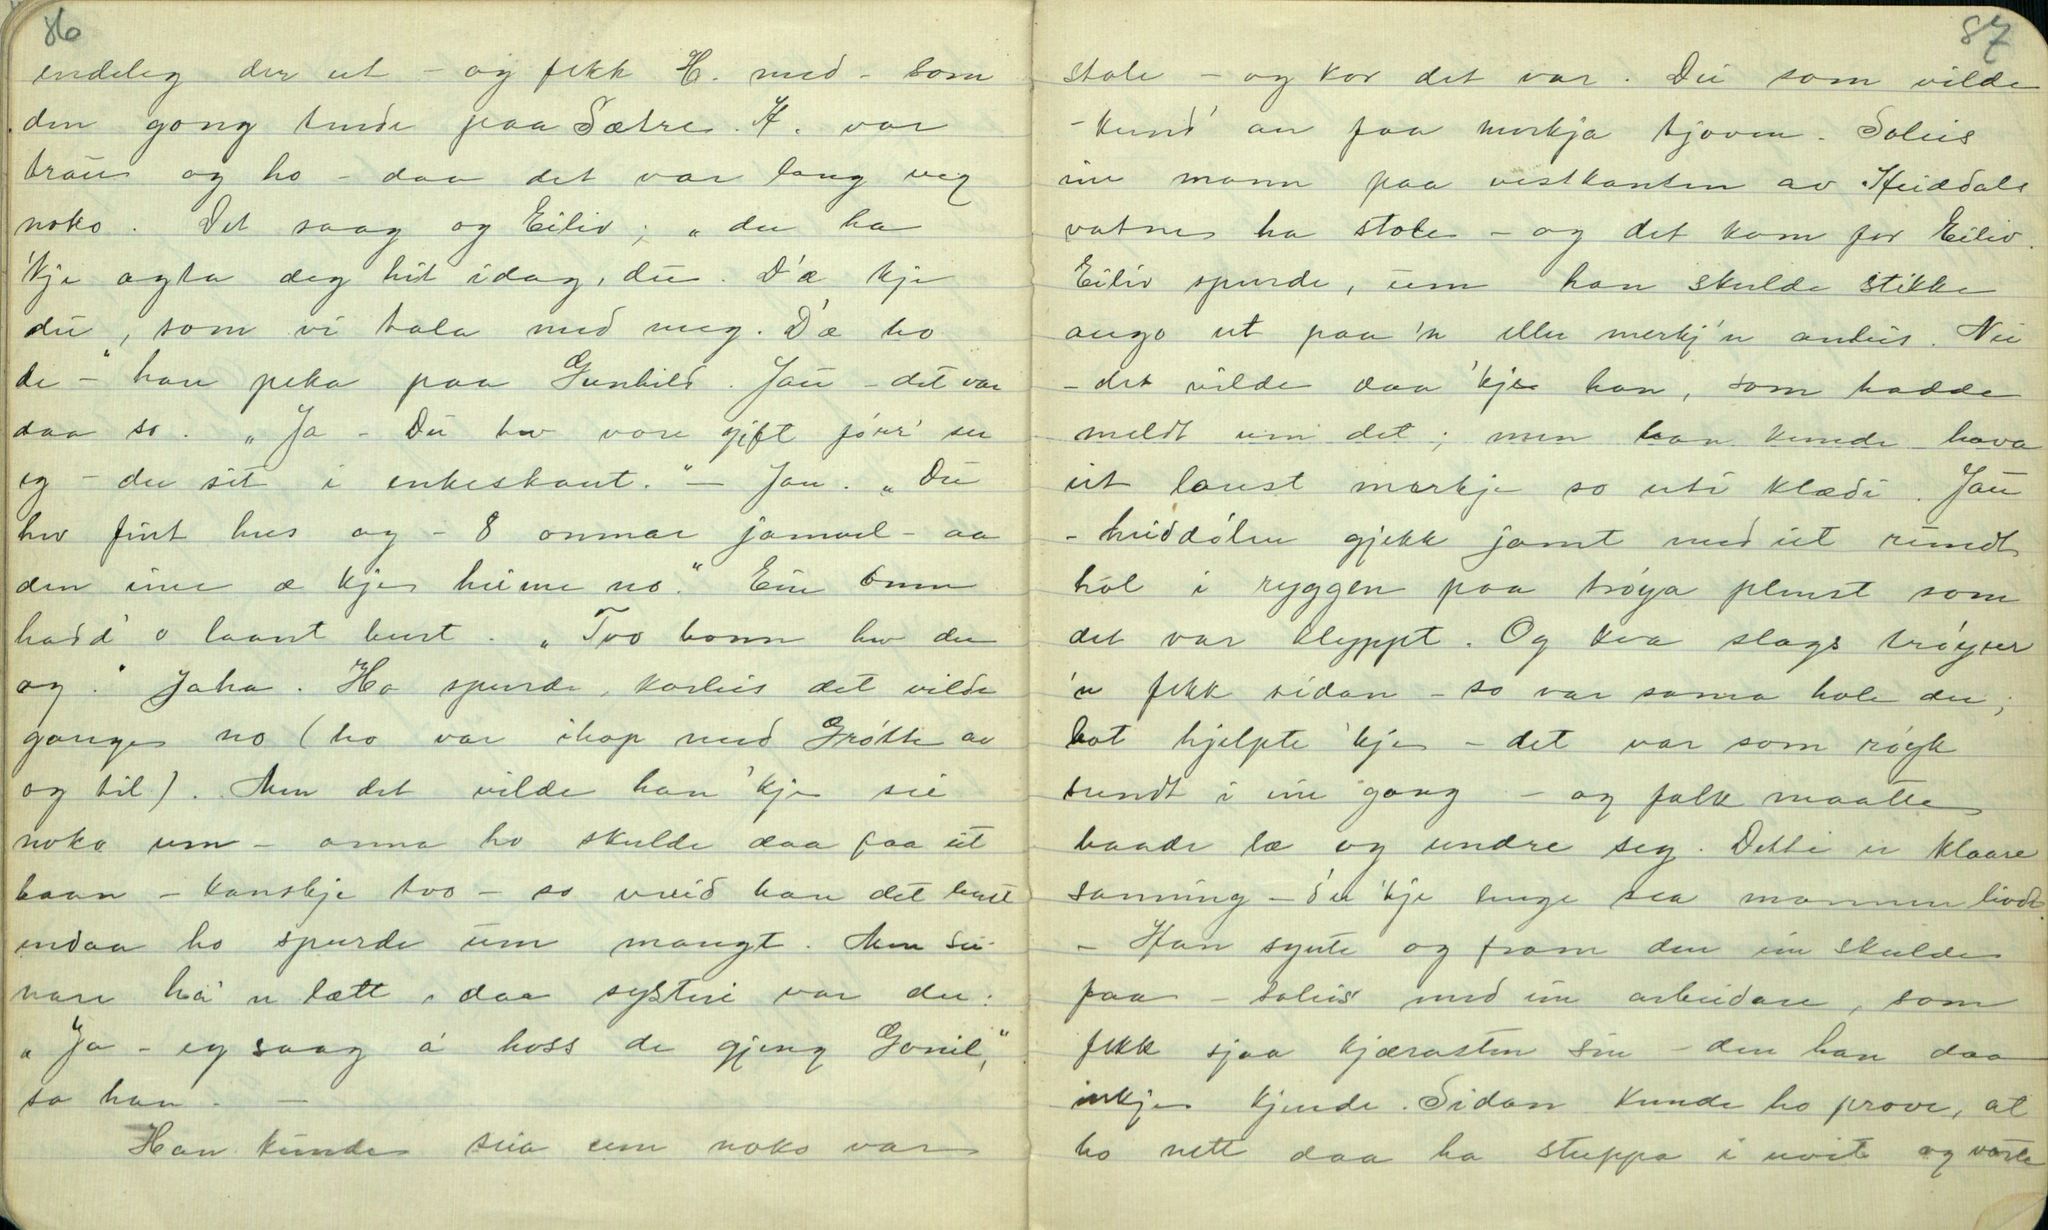 86
endeleg der ut - og fekk H. med - som
den gong tende paa Sætre. H. var
traui og ho - daa det var lang veg
noko. Det saag og Eiliv; „du ha
'kje agta deg hit idag, du. D'æ kje
du, som vi tala med meg. D'æ ho
de -" han peka paa Gunhild. Jau - det var
daa so. „Ja - Du hev vore gift fórr' ser
eg - du sit i enkeskaut." - Jau. „Du
hev fint hus og - 8 ommar jamvel - aa
den eine æ kje heime no." Ein omn
hadd' o laant burt. „Tvo bonn hev du
og." Jaha. Ho spurde, korleis det vilde
gange no (ho var ihop med Grótte av
og til). Men det vilde han 'kje sei
noko um - anna ho skulde daa faa eit
baan - kanskje tvo - so vreid han det burt
endaa ho spurde um mangt. Men sei-
nare ha' n lætt, daa systeri var der:
„Ja - eg saag å hoss de gjeng Gonil,"
sa han. -
Han kunde seia um noko var
87
stole - og kor det var. Du som vilde
- kund' an faa merkja tjoven. Soleis
ein mann paa vestkanten av Heiddals
vatne ha stole - og det kom for Eiliv.
Eiliv spurde, um han skulde stikke
augo ut paa 'n eller merkj'n anleis. Nei
- det vilde daa 'kje han, som hadde
meldt um det; men han kunde hava
eit laust merkje so uti klædi. Jau
- heiddólen gjekk jamt med eit rundt
hol i ryggen paa trøya plent som
det var klyppt. Og kva slags trøyer
'n fekk sidan - so var sama hole der;
bot hjelpte 'kje - det var som røyk
sundt i ein gong - og folk maatte
baade læ og undre seg. Dette er klaare
sanning - d'er 'kje lenge sea mannen livde.
- Han synte og fram den ein skulde
faa - soleis med ein arbeidare, som
fekk sjaa kjærasten sin - den han daa
inkje kjende. Sidan kunde ho prove, at
ho nett daa ha stuppa i uvit og vorte